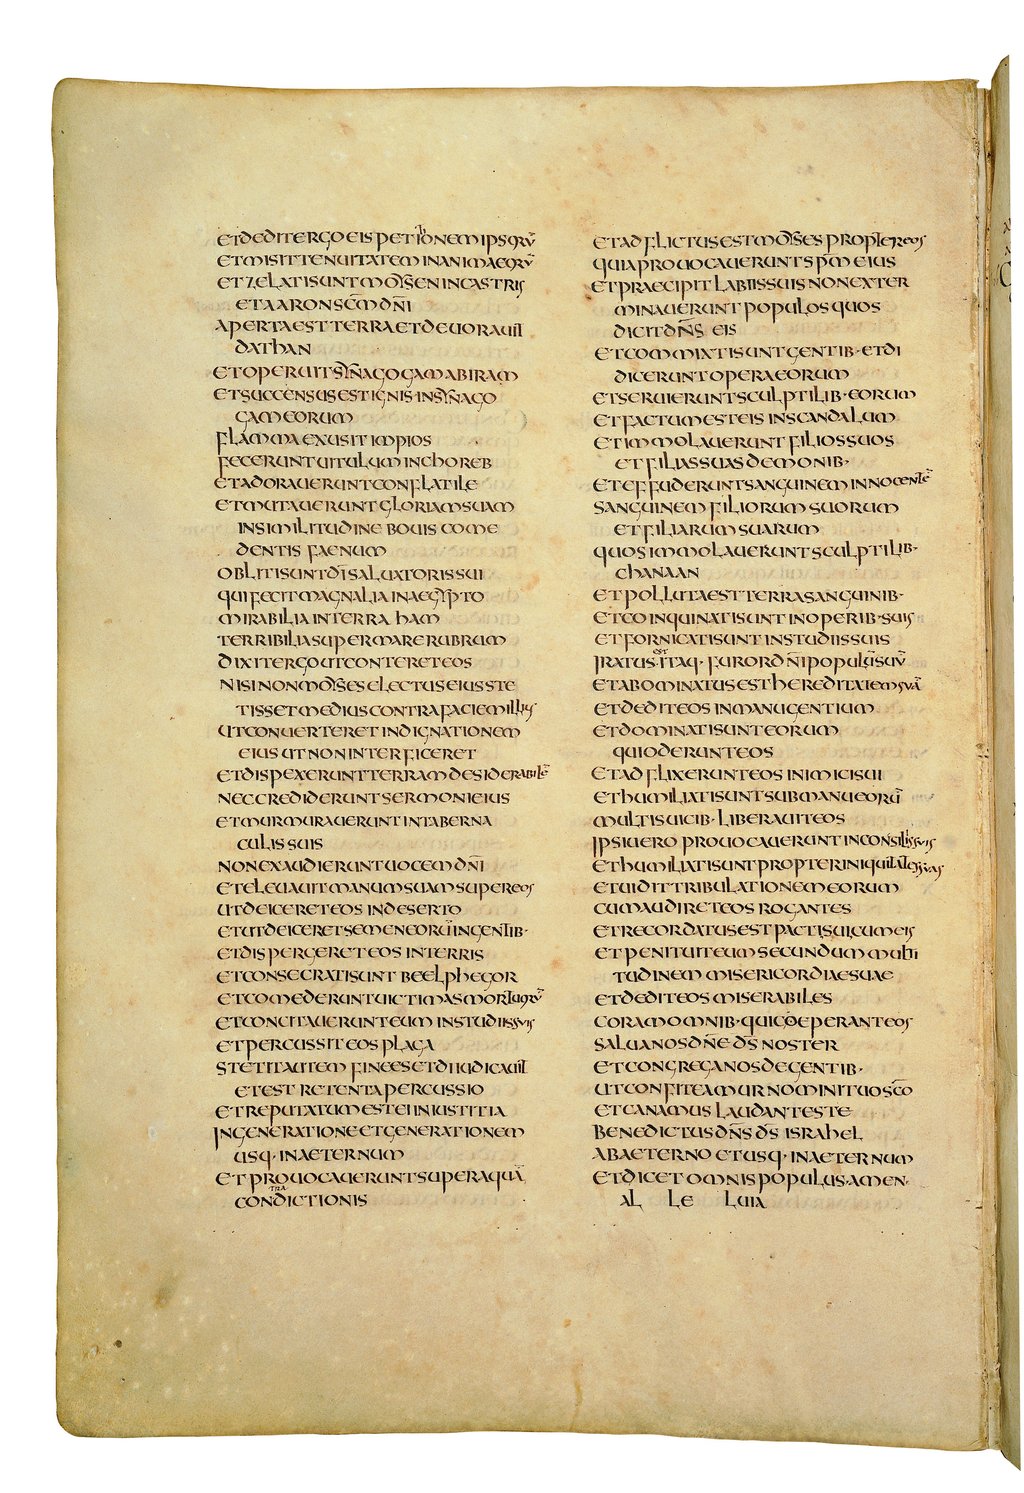 ETDEDITERGOEISPETITIONEMIPSORŪ
ETMISITTENUITATEMINANIMAEORŪ
ETZELATISUNTMOYSENINCASTRIS
ETAARONSC̄M DN̄I
APERTAESTTERRAETDEUORAUIT
DATHAN
ETOPERUITSYNAGOGAMABIRAM
ETSUCCENSUSESTIGNIS·INSYNAGO
GAMEORUM
FLAMMAEXUSITIMPIOS
FECERUNTUITULUMINCHOREB
ETADORAUERUNTCONFLATILE
ETMUTAUERUNTGLORIAMSUAM
INSIMILITUDINE BOUIS COME
DENTIS FAENUM
OBLITISUNTDM̄SALUATORISSUI
QUIFECITMAGNALIAINAEGYPTO
MIRABILIAINTERRA HAM
TERRIBILIASUPERMARERUBRUM
DIXITERGOUTCONTERETEOS
NISINONMOYSESELECTUSEIUSSTE
TISSETMEDIUSCONTRAFACIEMILLIS
UTCONUERTERETINDIGNATIONEM
EIUSUTNONINTERFICERET
ETDISPEXERUNTTERRAMDESIDERABILĒ
NECCREDIDERUNTSERMONIEIUS
ETMURMURAUERUNTINTABERNA
CULISSUIS
NONEXAUDIERUNTUOCEMDN̄I
ETELEUAUITMANUMSUAMSUPEREOS
UTDEICERETEOS INDESERTO
ETUTDEICERETSEMENEORŪINGENTIB·
ETDISPERGERETEOS INTERRIS
ETCONSECRATISUNT BEELPHEGOR
ETCOMEDERUNTUICTIMASMORTUORŪ
ETCONCITAUERUNTEUM INSTUDIISSUIS
ETPERCUSSITEOSPLAGA
STETITAUTEM FINEESETDIIUDICAUIT
ETEST RETENTAPERCUSSIO
ETREPUTATUMESTEIINIUSTITIA
INGENERATIONEETGENERATIONEM
USQ·INAETERNUM
ETPROUOCAUERUNTSUPERAQUĀ
CONTRADICTIONIS
ETADFLICTUSESTMOYSESPROPTEREOS
QUIAPROUOCAUERUNTSPM̄EIUS
ETPRAECIPITLABIISSUISNONEXTER
MINAUERUNTPOPULOSQUOS
DICITDN̄S EIS
ETCOMMIXTISUNTGENTIB·ETDI
DICERUNTOPERAEORUM
ETSERUIERUNTSCULPTILIB·EORUM
ETFACTUMESTEIS INSCANDALUM
ETIMMOLAUERUNT FILIOSSUOS
ETFILIASSUASDEMONIB·
ETEFFUDERUNTSANGUINEMINNOCENTĒ
SANGUINEMFILIORUMSUORUM
ETFILIARUMSUARUM
QUOSIMMOLAUERUNTSCULPTILIB·
CHANAAN
ETPOLLUTAESTTERRASANGUINIB·
ETCOINQUINATISUNTINOPERIB·SUIS
ETFORNICATISUNT INSTUDIISSUIS
IRATUSESTITAQ·FURORDN̄IPOPULUSSUŪ
ETABOMINATUSESTHEREDITATEMSUĀ
ETDEDITEOS INMANUGENTIUM
ETDOMINATISUNTEORUM
QUIODERUNTEOS
ETADFLIXERUNTEOS INIMICISUI
ETHUMILIATISUNTSUBMANUEORŪ
MULTISUICIB·LIBERAUITEOS
IPSIUERO PROUOCAUERUNTINCONSILIISSUIS
ETHUMILIATISUNTPROPTERINIQUITATESSUAS
ETUIDITTRIBULATIONEMEORUM
CUMAUDIRETEOS ROGANTES
ETRECORDATUSESTPACTISUICUMEIS
ETPENITUITEUMSECUNDUMMULTI
TUDINEM MISERICORDIAESUAE
ETDEDITEOSMISERABILES
CORAMOMNIB·QUICOEPERANTEOS
SALUANOSDN̄E DS̄ NOSTER
ETCONGREGANOSDEGENTIB·
UTCONFITEAMURNOMINITUOSC̄O
ETCANAMUS LAUDANTESTE
BENEDICTUSDN̄S DS̄ ISRAHEL
ABAETERNO ETUSQ·INAETERNUM
ETDICETOMNISPOPULUS·AMEN·
AL LE LUIA